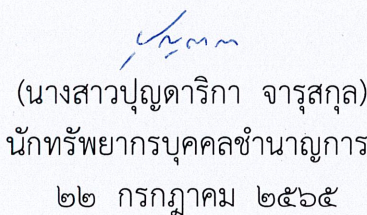 (นางสาวปุญดาริกา จารุสกุล)
นักทรัพยากรบุคคลชำนาญการ
๒๒ กรกฎาคม ๒๕๖๕